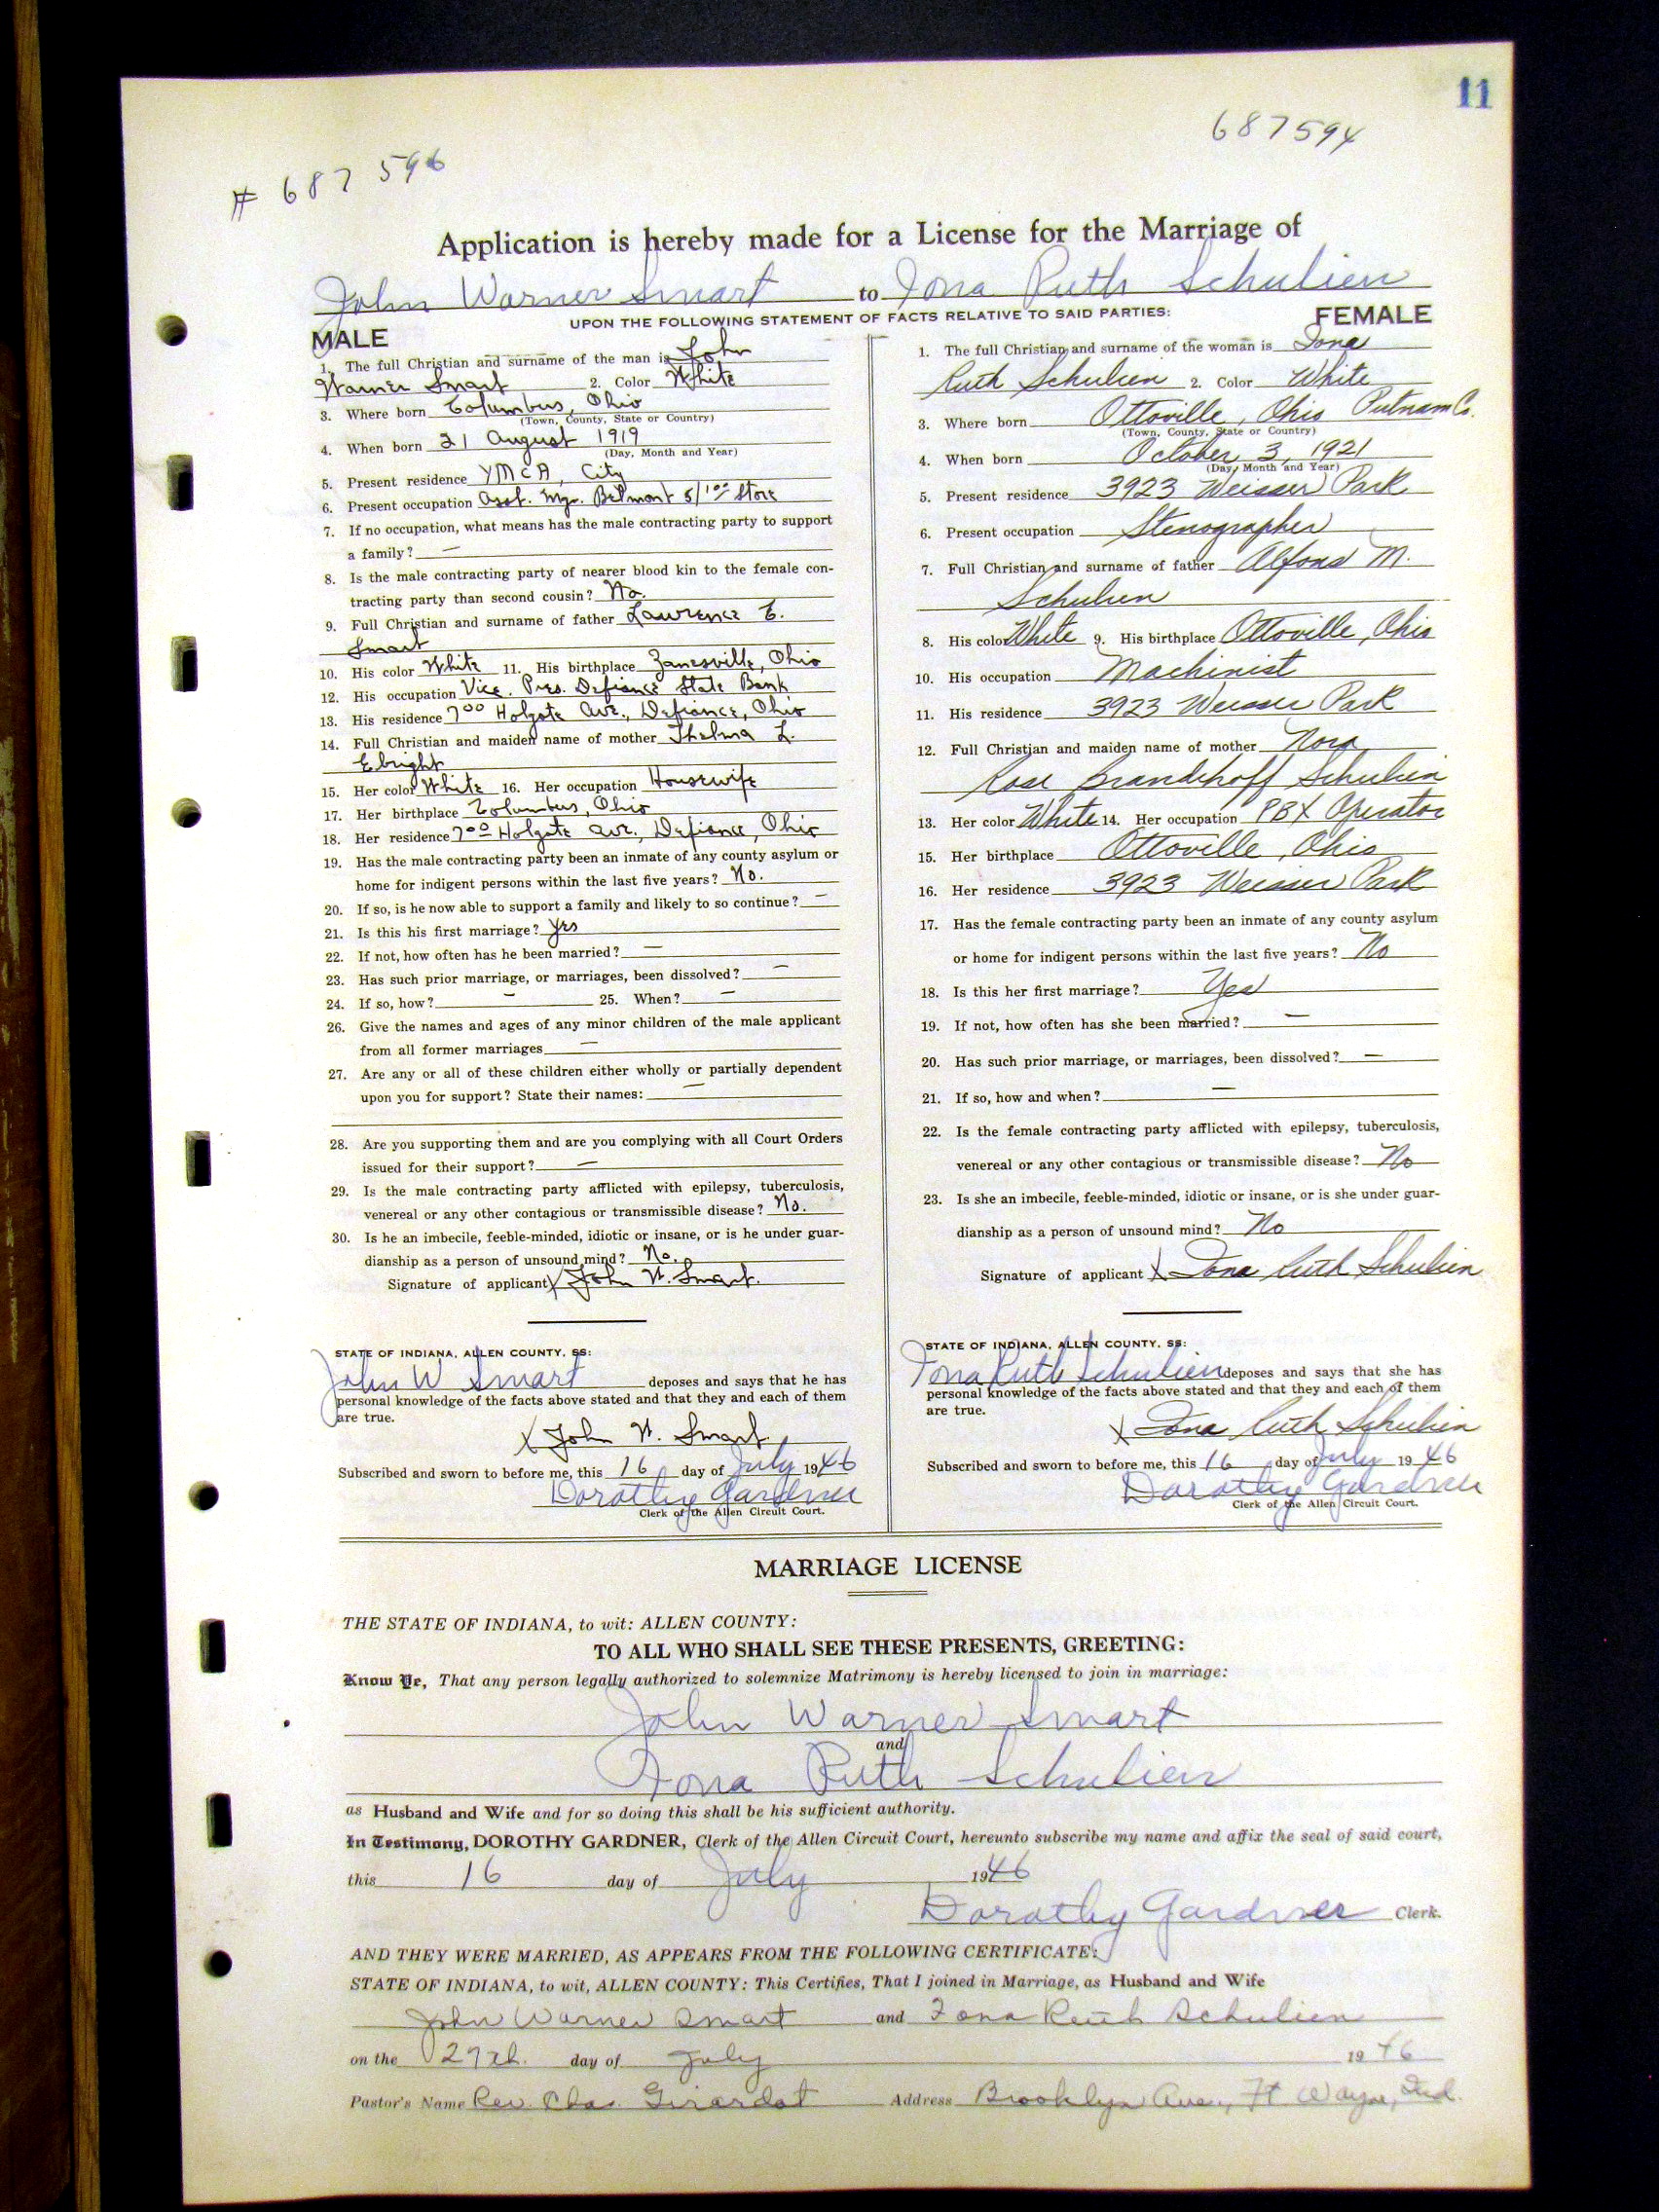 11
687594
# 687 596
Application is hereby made for a License for the Marriage of
John Warner Smart to Iona Ruth Schulien
UPON THE FOLLOWING STATEMENT OF FACTS RELATIVE TO SAID PARTIES:
MALE
1. The full Christian and surname of the man is John
Warner Smart 2. Color White
3. Where born Columbus, Ohio
(Town, County, State or Country)
4. When born 21 August 1919
(Day, Month and Year)
5. Present residence YMCA, City
6. Present occupation Asst. Mgr. Belmont 5/100 Store
7. If no occupation, what means has the male contracting party to support
a family? —
8. Is the male contracting party of nearer blood kin to the female con-
tracting party than second cousin? No.
9. Full Christian and surname of father Lawrence E.
Smart
10. His color White 11. His birthplace Zanesville, Ohio
12. His occupation Vice. Pres. Defiance State Bank
13. His residence 700 Holgate Ave., Defiance, Ohio
14. Full Christian and maiden name of mother Thelma L.
Ebright
15. Her color White 16. Her occupation Housewife
17. Her birthplace Columbus, Ohio
18. Her residence 700 Holgate Ave., Defiance, Ohio
19. Has the male contracting party been an inmate of any county asylum or
home for indigent persons within the last five years? No.
20. If so, is he now able to support a family and likely to so continue? —
21. Is this his first marriage? Yes
22. If not, how often has he been married? —
23. Has such prior marriage, or marriages, been dissolved? —
24. If so, how? — 25. When? —
26. Give the names and ages of any minor children of the male applicant
from all former marriages —
27. Are any or all of these children either wholly or partially dependent
upon you for support? State their names: —
28. Are you supporting them and are you complying with all Court Orders
issued for their support? —
29. Is the male contracting party afflicted with epilepsy, tuberculosis,
venereal or any other contagious or transmissible disease? No.
30. Is he an imbecile, feeble-minded, idiotic or insane, or is he under guar-
dianship as a person of unsound mind? No.
Signature of applicant X John W. Smart.
STATE OF INDIANA, ALLEN COUNTY, SS:
John W Smart deposes and says that he has
personal knowledge of the facts above stated and that they and each of them
are true.
X John W. Smart
Subscribed and sworn to before me, this 16 day of July 1946
Dorothy Gardner
Clerk of the Allen Circuit Court.
FEMALE
1. The full Christian and surname of the woman is Iona
Ruth Schulien 2. Color White
3. Where born Ottoville, Ohio Putnam Co.
(Town, County, State or Country)
4. When born October 3, 1921
(Day, Month and Year)
5. Present residence 3923 Weisser Park
6. Present occupation Stenographer
7. Full Christian and surname of father Alfons M.
Schulien
8. His color White 9. His birthplace Ottoville, Ohio
10. His occupation Machinist
11. His residence 3923 Weisser Park
12. Full Christian and maiden name of mother Nora
Rose Brandehoff Schulien
13. Her color White 14. Her occupation PBX Operator
15. Her birthplace Ottoville, Ohio
16. Her residence 3923 Weisser Park
17. Has the female contracting party been an inmate of any county asylum
or home for indigent persons within the last five years? No
18. Is this her first marriage? Yes
19. If not, how often has she been married? —
20. Has such prior marriage, or marriages, been dissolved? —
21. If so, how and when? —
22. Is the female contracting party afflicted with epilepsy, tuberculosis,
venereal or any other contagious or transmissible disease? No
23. Is she an imbecile, feeble-minded, idiotic or insane, or is she under guar-
dianship as a person of unsound mind? No
Signature of applicant X Iona Ruth Schulien
STATE OF INDIANA, ALLEN COUNTY, SS:
Iona Ruth Schulien deposes and says that she has
personal knowledge of the facts above stated and that they and each of them
are true.
X Iona Ruth Schulien
Subscribed and sworn to before me, this 16 day of July 1946
Dorothy Gardner
Clerk of the Allen Circuit Court.
MARRIAGE LICENSE
THE STATE OF INDIANA, to wit: ALLEN COUNTY:
TO ALL WHO SHALL SEE THESE PRESENTS, GREETING:
Know Ye, That any person legally authorized to solemnize Matrimony is hereby licensed to join in marriage:
John Warner Smart
and
Iona Ruth Schulien
as Husband and Wife and for so doing this shall be his sufficient authority.
In Testimony, DOROTHY GARDNER, Clerk of the Allen Circuit Court, hereunto subscribe my name and affix the seal of said court,
this 16 day of July 1946
Dorothy Gardner Clerk.
AND THEY WERE MARRIED, AS APPEARS FROM THE FOLLOWING CERTIFICATE:
STATE OF INDIANA, to wit, ALLEN COUNTY: This Certifies, That I joined in Marriage, as Husband and Wife
John Warner Smart and Iona Ruth Schulien
on the 27th. day of July 1946
Pastor's Name Rev. Chas. Girardot Address Brooklyn Ave., Ft Wayne, Ind.